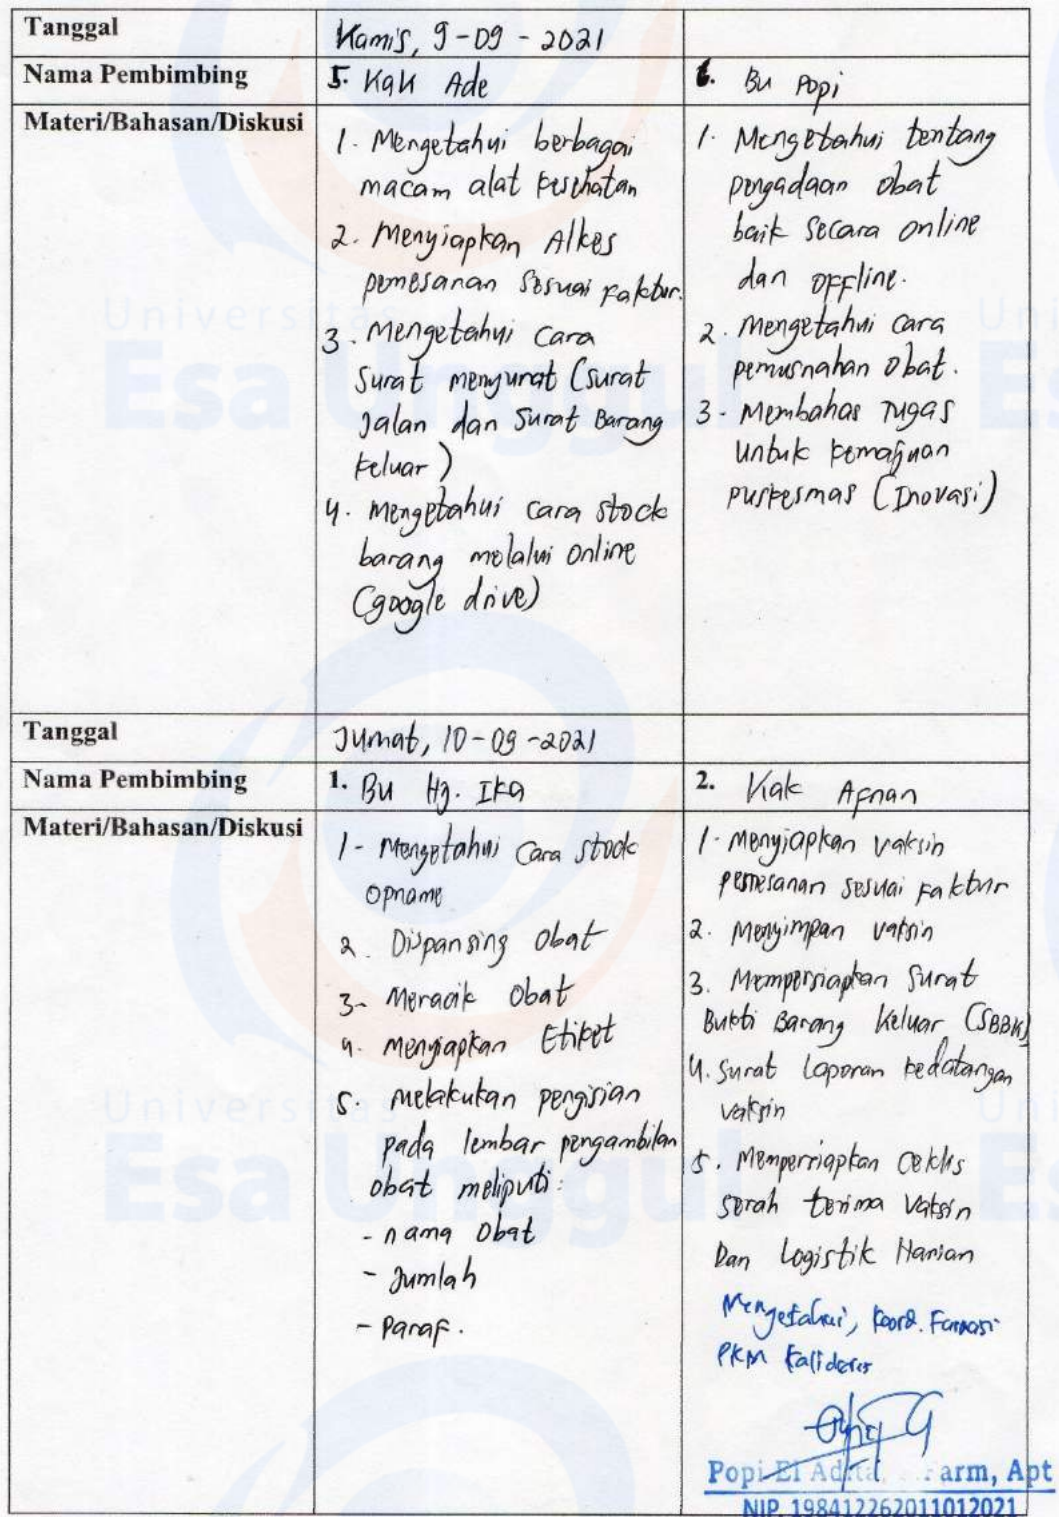 Tanggal
Kamis, 9-09-2021
Nama Pembimbing
5. Kak Ade
6. Bu Popi
Materi/Bahasan/Diskusi
1. Mengetahui berbagai
macam alat kesehatan
2. Menyiapkan Alkes
pemesanan sesuai faktur.
3. Mengetahui Cara
Surat menyurat (surat
Jalan dan Surat Barang
keluar)
4. Mengetahui cara stock
barang melalui online
(google drive)
1. Mengetahui tentang
pengadaan obat
baik secara online
dan offline.
2. Mengetahui cara
pemusnahan obat.
3. Membahas Tugas
untuk kemajuan
puskesmas (Inovasi)
Tanggal
Jumat, 10-09-2021
Nama Pembimbing
1. Bu Hj. Ika
2. Kak Afnan
Materi/Bahasan/Diskusi
1- Mengetahui Cara stock
Opname
2. Dispansing Obat
3- Meracik Obat
4. Menyiapkan Etiket
5. Melakukan pengisian
pada lembar pengambilan
obat meliputi:
- nama Obat
- Jumlah
- Paraf.
1. Menyiapkan vaksin
pemesanan sesuai faktur
2. Menyimpan vaksin
3. Mempersiapkan Surat
Bukti Barang Keluar (SBBK)
4. Surat Laporan kedatangan
vaksin
5. Mempersiapkan Ceklis
serah terima Vaksin
Dan Logistik Harian
Mengetahui, Koord. Farmasi
PKM Kalideres
Popi El Adita, Farm, Apt
NIP. 198412262011012021
Universitas
Esa Unggul
Universitas
Esa Unggul